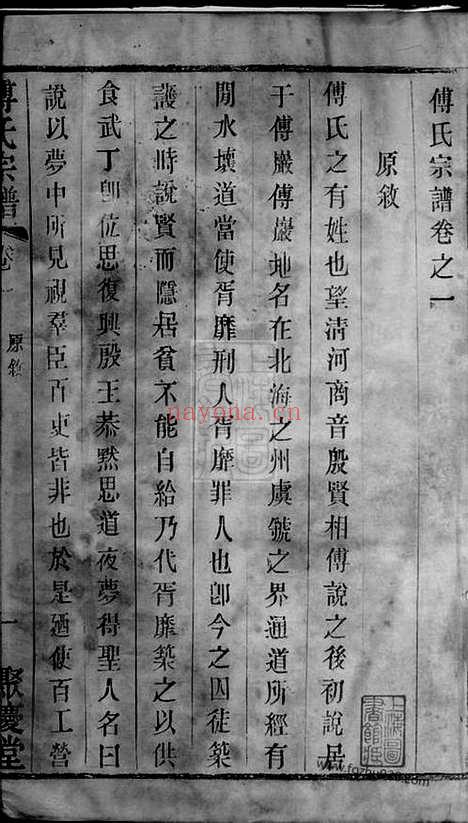 傅氏宗譜卷之一
原敘
傅氏之有姓也望清河商音殷賢相傅說之後初說居
于傅巖傅巖地名在北海之州虞虢之界通道所經有
澗水壞道當使胥靡刑人胥靡罪人也卽今之囚徒築
護之時說賢而隱居貧不能自給乃代胥靡築之以供
食武丁卽位思復興殷王恭默思道夜夢得聖人名曰
說以夢中所見視羣臣百吏皆非也於是廼使百工營
傅氏宗譜
卷一
原敘
一
聚慶堂
nayona.cn
上海圖書館藏